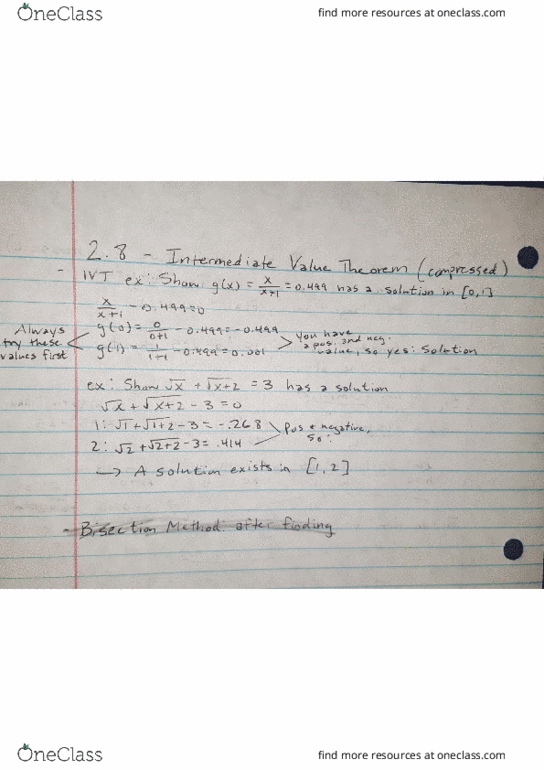 OneClass
find more resources at oneclass.com
2.8 - Intermediate Value Theorem (compressed)
- IVT ex: Show g(x) = x/x+1 = 0.499 has a solution in [0,1]
x/x+1 - 0.499=0
Always try these values first
g(0)= 0/0+1 - 0.499= -0.499
g(1)= 1/1+1 - 0.499= 0.001
you have a pos. and neg. value, so yes: Solution
ex: Show √x + √x+2 = 3 has a solution
√x + √x+2 - 3 = 0
1: √1 + √1+2 - 3 = -.268
2: √2 + √2+2 - 3 = .414
Pos & negative, so:
→ A solution exists in [1,2]
- Bisection Method: after finding
OneClass
find more resources at oneclass.com